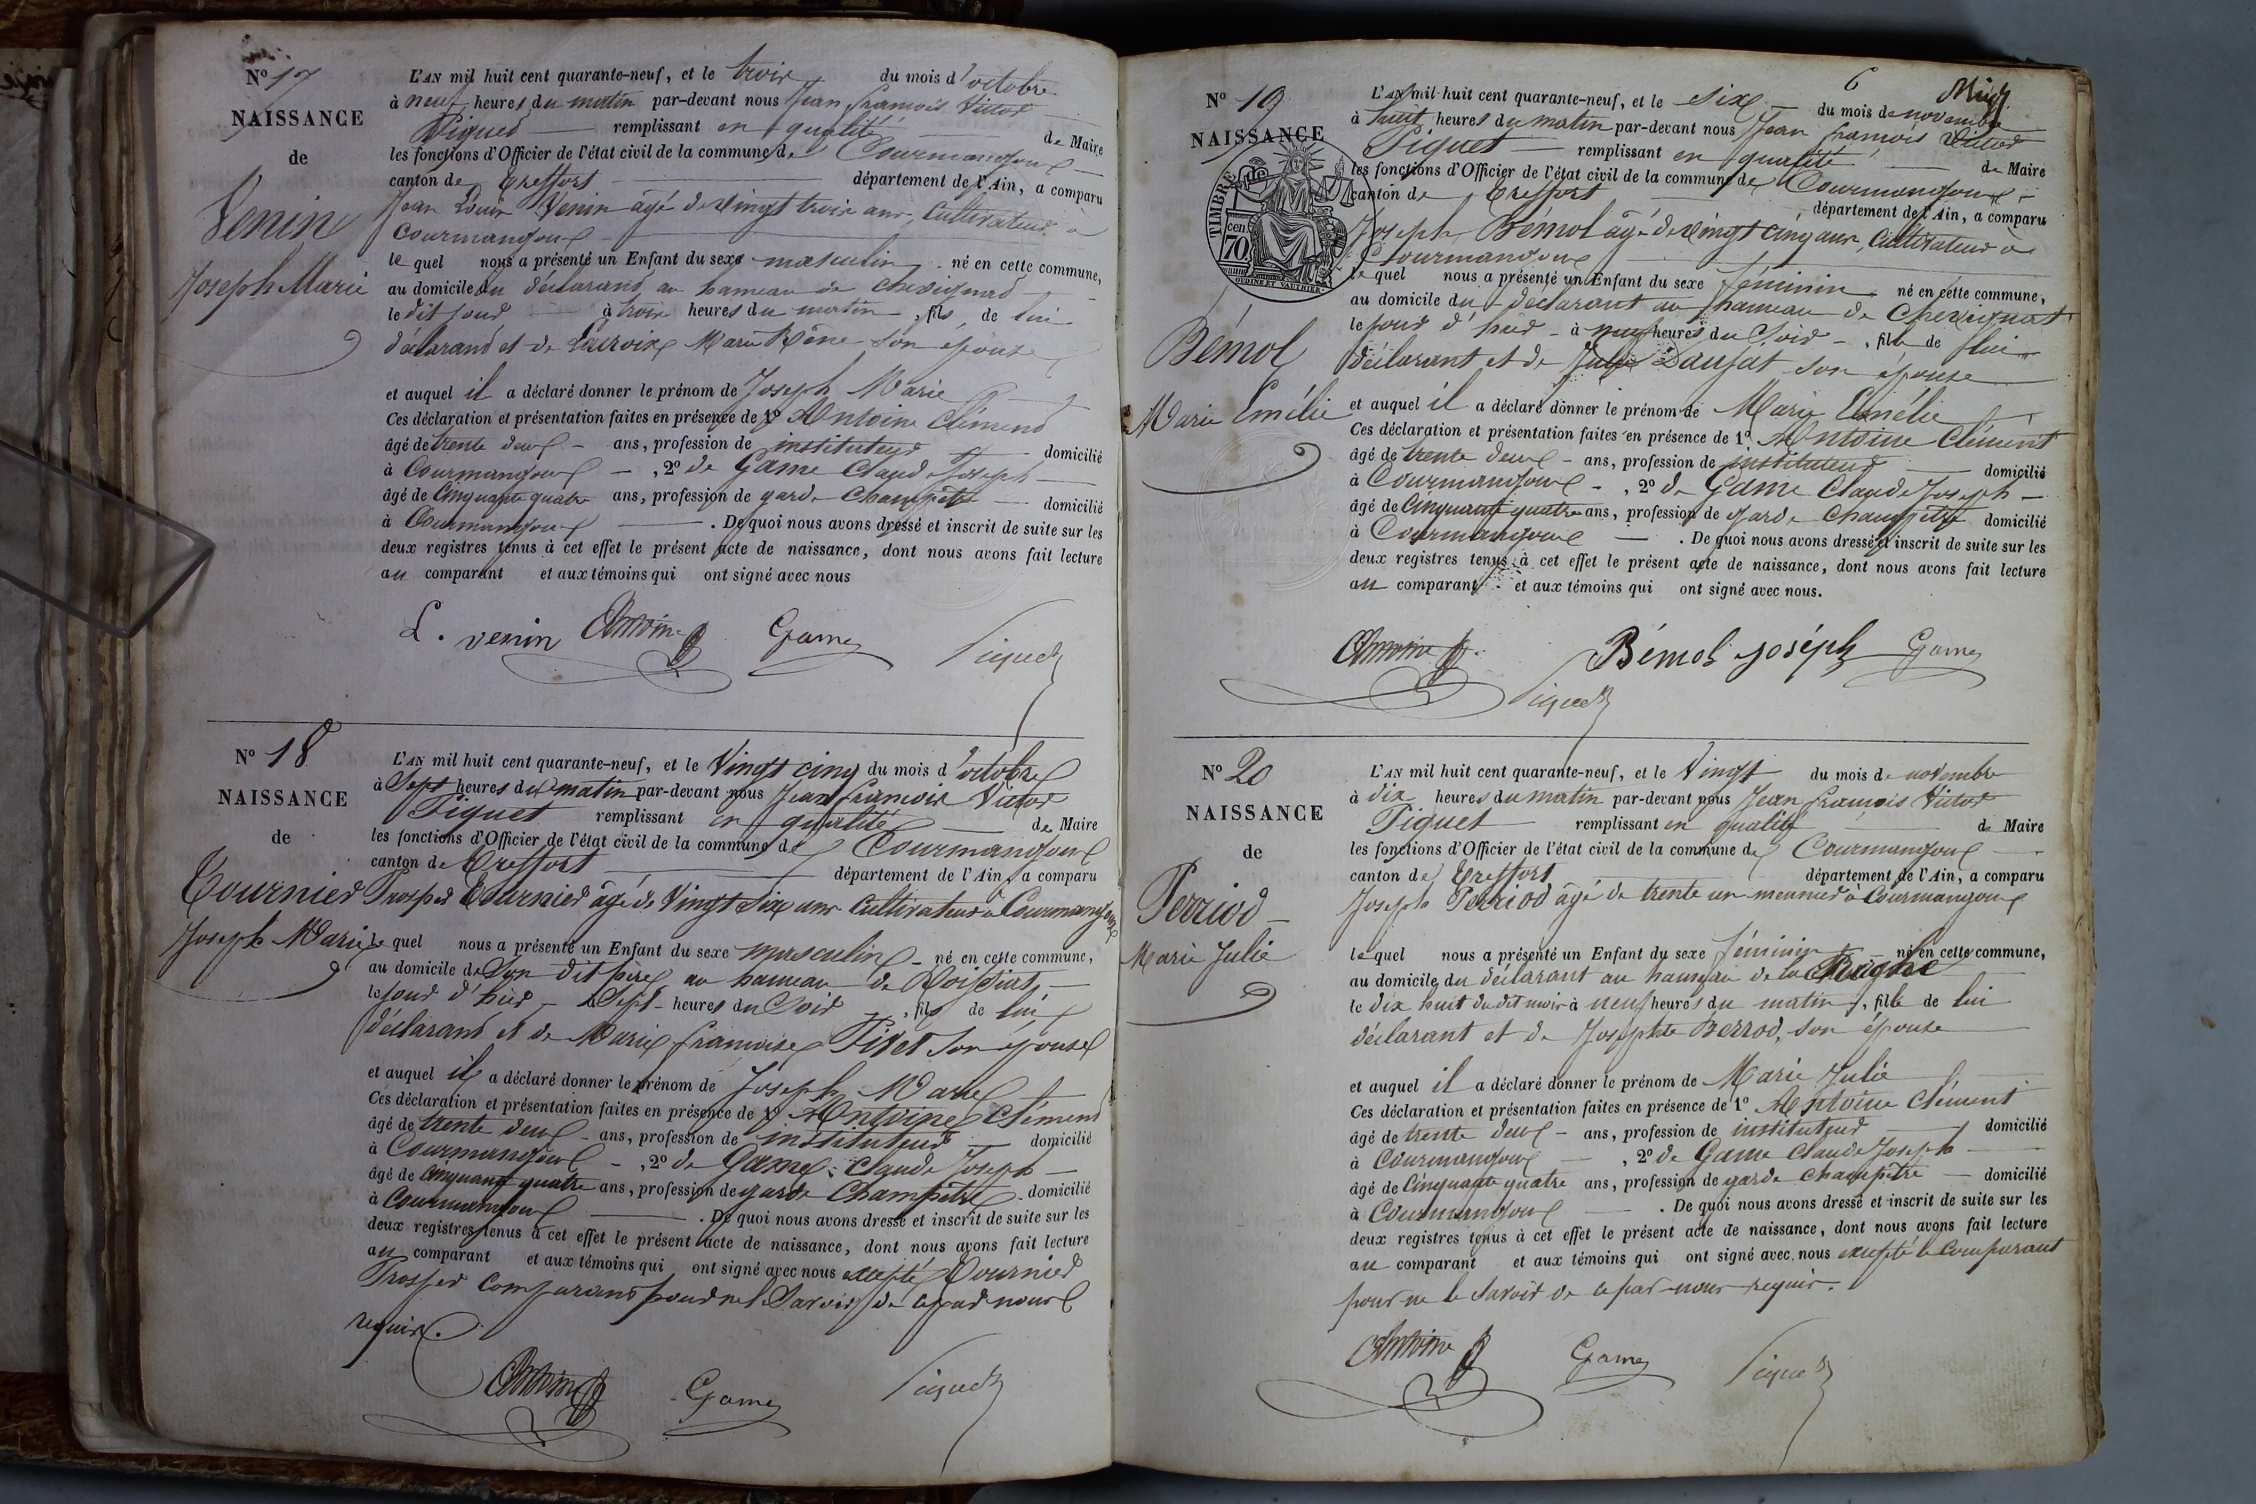 N° 17
NAISSANCE
de
Venin
Joseph Marie
L'AN mil huit cent quarante-neuf, et le trois du mois d'octobre
à neuf heures du matin par-devant nous Jean françois Victor
Piquet remplissant en qualité de Maire
les fonctions d'Officier de l'état civil de la commune de Courmangoux
canton de Treffort département de l'Ain, a comparu
Jean Louis Venin âgé de vingt trois ans, Cultivateur à
Courmangoux
le quel nous a présenté un Enfant du sexe masculin né en cette commune,
au domicile du déclarant au hameau de chevignat
le dit jour à trois heures du matin, fils de lui
déclarant et de Lacroix Marie Rène son épouse
et auquel il a déclaré donner le prénom de Joseph Marie
Ces déclaration et présentation faites en présence de 1° Antoine Clément
âgé de trente deux ans, profession de instituteur domicilié
à Courmangoux, 2° de Game Claude Joseph
âgé de Cinquante quatre ans, profession de garde Champêtre domicilié
à Courmangoux. De quoi nous avons dressé et inscrit de suite sur les
deux registres tenus à cet effet le présent acte de naissance, dont nous avons fait lecture
au comparant et aux témoins qui ont signé avec nous
L. venin Antoine Game Piquet
N° 18
NAISSANCE
de
Tournier
Joseph Marie
L'AN mil huit cent quarante-neuf, et le Vingt cinq du mois d'octobre
à Sept heures du matin par-devant nous Jean françois Victor
Piquet remplissant en qualité de Maire
les fonctions d'Officier de l'état civil de la commune de Courmangoux
canton de Treffort département de l'Ain, a comparu
Prosper Tournier âgé de Vingt Six ans Cultivateur à Courmangoux
le quel nous a présenté un Enfant du sexe masculin né en cette commune,
au domicile de Son dit père au hameau de Roissiat,
le jour d'hier à Sept heures du Soir, fils de lui
déclarant et de Marie françoise Pitet son épouse
et auquel il a déclaré donner le prénom de Joseph Marie
Ces déclaration et présentation faites en présence de 1° Antoine Clément
âgé de trente deux ans, profession de instituteur domicilié
à Courmangoux, 2° de Game Claude Joseph
âgé de Cinquante quatre ans, profession de garde Champêtre domicilié
à Courmangoux. De quoi nous avons dressé et inscrit de suite sur les
deux registres tenus à cet effet le présent acte de naissance, dont nous avons fait lecture
au comparant et aux témoins qui ont signé avec nous excepté Tournier
Prosper comparant pour ne le Savoir de ce par nous
requis.
Antoine Game Piquet
6
N° 19
NAISSANCE
de
TIMBRE
70 cent
OUDINE ET VAUTHIER
Bémol
Marie Emélie
L'AN mil huit cent quarante-neuf, et le six du mois de novembre
à huit heures du matin par-devant nous Jean françois Victor
Piquet remplissant en qualité de Maire
les fonctions d'Officier de l'état civil de la commune de Courmangoux
canton de Treffort département de l'Ain, a comparu
Joseph Bémol âgé de vingt cinq ans, Cultivateur à
Courmangoux
le quel nous a présenté un Enfant du sexe féminin né en cette commune,
au domicile du déclarant au hameau de Chevignat
le jour d'hier à neuf heures du Soir, fille de lui
déclarant et de Julie Daujat son épouse
et auquel il a déclaré donner le prénom de Marie Emélie
Ces déclaration et présentation faites en présence de 1° Antoine Clément
âgé de trente deux ans, profession de instituteur domicilié
à Courmangoux, 2° de Game Claude Joseph
âgé de Cinquante quatre ans, profession de garde Champêtre domicilié
à Courmangoux. De quoi nous avons dressé et inscrit de suite sur les
deux registres tenus à cet effet le présent acte de naissance, dont nous avons fait lecture
au comparant et aux témoins qui ont signé avec nous.
Antoine Bémol joséph Game
Piquet
N° 20
NAISSANCE
de
Perriod
Marie Julie
L'AN mil huit cent quarante-neuf, et le Vingt du mois de novembre
à dix heures du matin par-devant nous Jean françois Victor
Piquet remplissant en qualité de Maire
les fonctions d'Officier de l'état civil de la commune de Courmangoux
canton de Treffort département de l'Ain, a comparu
Joseph Perriod âgé de trente un meunier à Courmangoux
le quel nous a présenté un Enfant du sexe féminin né en cette commune,
au domicile du déclarant au hameau de la
le dix huit du dit mois à neuf heures du matin, fille de lui
déclarant et de Josephte Berrod, son épouse
et auquel il a déclaré donner le prénom de Marie Julie
Ces déclaration et présentation faites en présence de 1° Antoine Clément
âgé de trente deux ans, profession de instituteur domicilié
à Courmangoux, 2° de Game Claude Joseph
âgé de Cinquante quatre ans, profession de garde champêtre domicilié
à Courmangoux. De quoi nous avons dressé et inscrit de suite sur les
deux registres tenus à cet effet le présent acte de naissance, dont nous avons fait lecture
au comparant et aux témoins qui ont signé avec nous excepté le Comparant
pour ne le Savoir de ce par nous requis.
Antoine Game Piquet